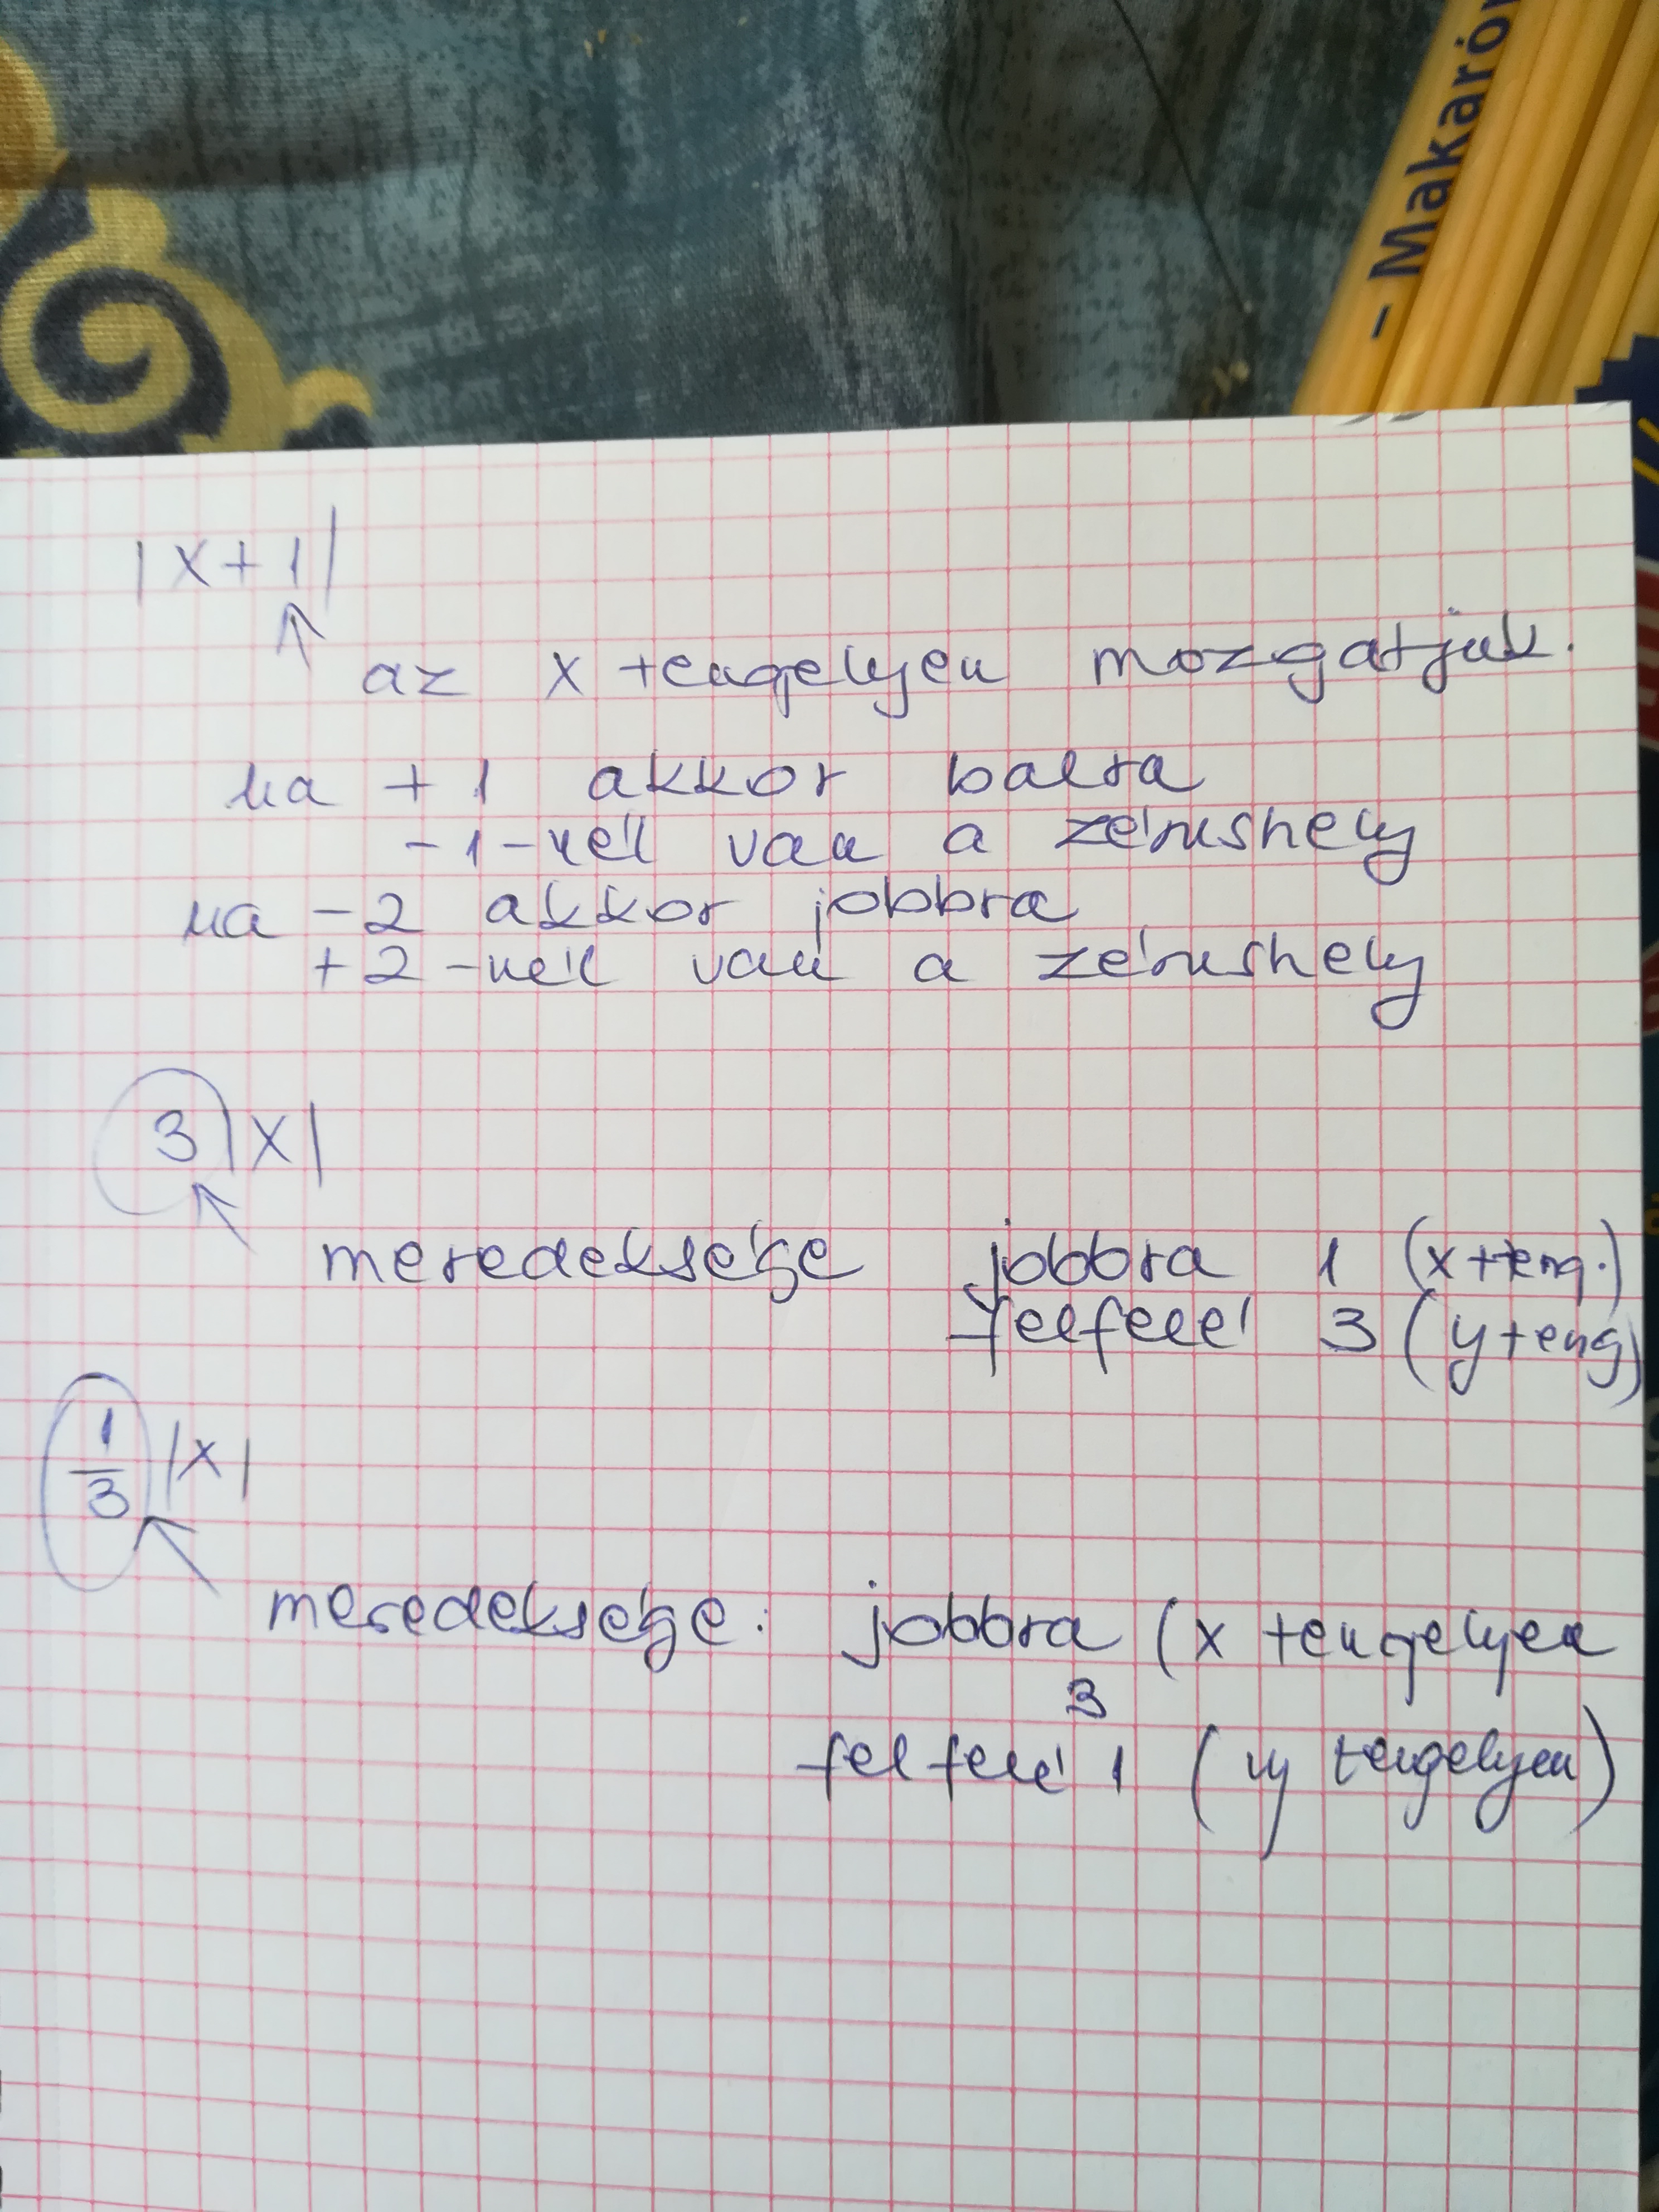 - Makarón
|x+1|
az x tengelyen mozgatjuk.
ha +1 akkor balra
-1-nél van a zérushely
ha -2 akkor jobbra
+2-nél van a zérushely
3|x|
meredeksége jobbra 1 (x teng.)
felfelé 3 (y teng)
1/3 |x|
meredeksége: jobbra (x tengelyen
3
felfelé 1 (y tengelyen)